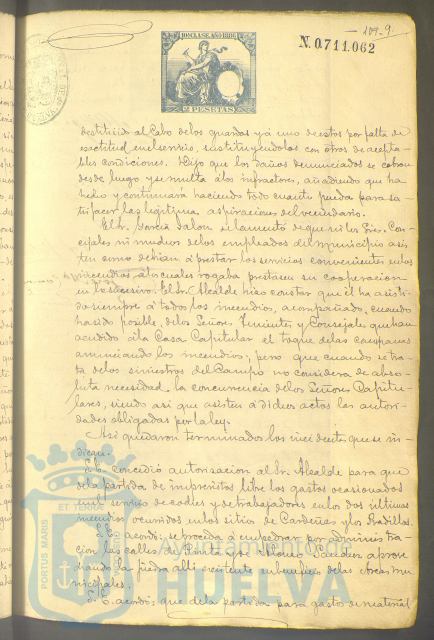 109-9.
10ª CLASE. AÑO 1886
N. 0.711.062
2 PESETAS
destituido al Cabo de los guardas y á uno de estos por falta de
exactitud en el servicio, sustituyendolos con otros de acepta-
bles condiciones. Dijo que los daños denunciados se cobran
desde luego y se multa á los infractores, añadiendo que ha
hecho y continuará haciendo todo cuanto pueda para sa-
tisfacer las legítimas aspiraciones del vecindario.
El Sr. García Jalon se lamentó de que ni los Sres. Con-
cejales ni muchos de los empleados del Municipio asis-
ten como debian á prestar los servicios convenientes en los
incendios, á los cuales rogaba prestasen su cooperacion
en lo sucesivo. El Sr. Alcalde hizo constar que él ha asisti-
do siempre á todos los incendios, acompañado, cuando
ha sido posible, de los Señores Tenientes y Concejales que han
acudido á la Casa Capitular al toque de las campanas
anunciando los incendios, pero que cuando se tra-
ta de los siniestros del Campo no considera de abso-
luta necesidad, la concurrencia de los Señores Capitu-
lares, siendo asi que asisten á dichos actos las autori-
dades obligadas por la ley.
Asi quedaron terminados los incidentes que se in-
dican.
S.E. concedió autorizacion al Sr. Alcalde para que
de la partida de imprevistos libre los gastos ocasionados
en el servicio de coches y de trabajadores en los dos últimos
incendios ocurridos en los sitios de Cardeñas y los Pradillos.
S.E. acordó se proceda á empedrar por administra-
cion las calles de Palos y San
chando la piedra alli existente en beneficio de las obras mu-
nicipales.
S.E. acordó que de la partida para gastos de material
PORTUS MARIS
ET TERRAE
Ayuntamiento de
HUELVA